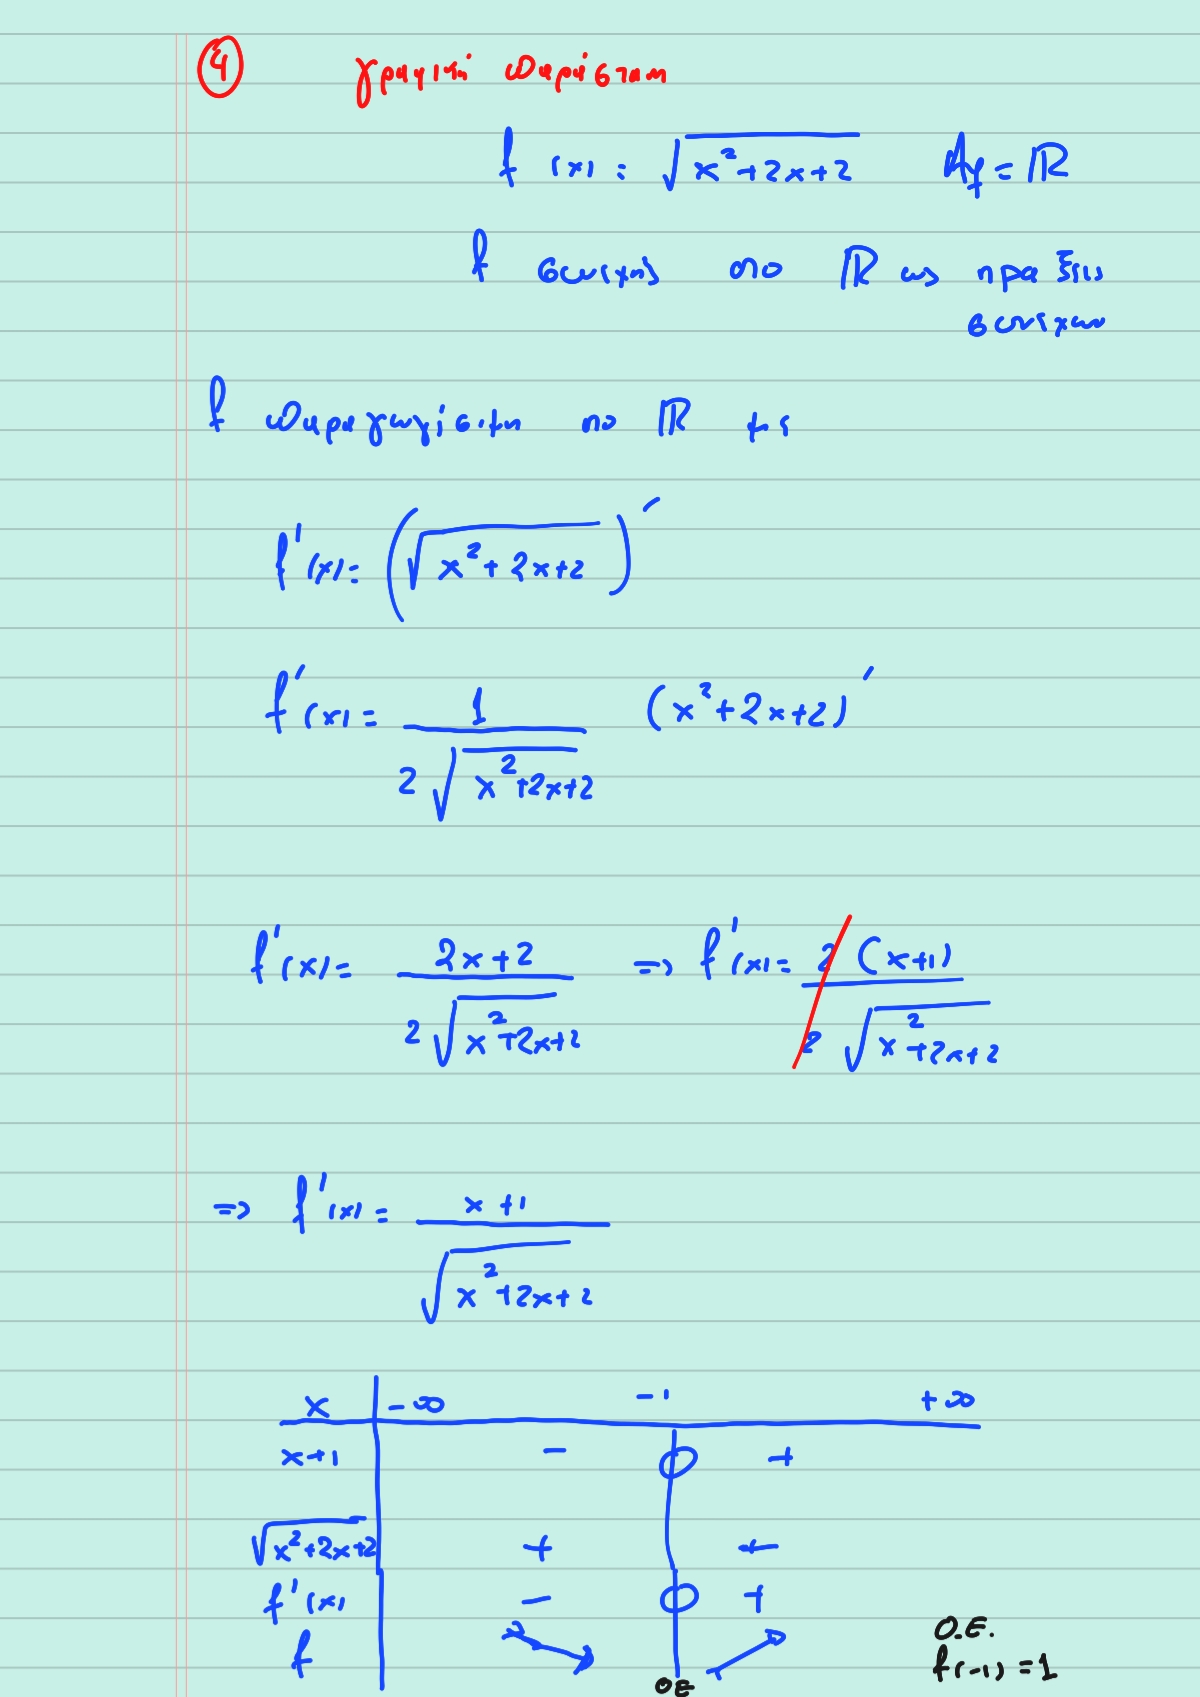 ④ γραφική παράσταση
f(x) = √(x²+2x+2) A_f = ℝ
f συνεχής στο ℝ ως πράξεις
συνεχων
f παραγωγίσιμη στο ℝ με
f'(x) = (√(x²+2x+2))'
f'(x) = 1/(2√(x²+2x+2)) (x²+2x+2)'
f'(x) = (2x+2)/(2√(x²+2x+2)) => f'(x) = 2(x+1)/(2√(x²+2x+2))
=> f'(x) = (x+1)/√(x²+2x+2)
x -∞ -1 +∞
x+1 - 0 +
√(x²+2x+2) + +
f'(x) - 0 +
f ↘ ↗ O.E.
OE f(-1) = 1